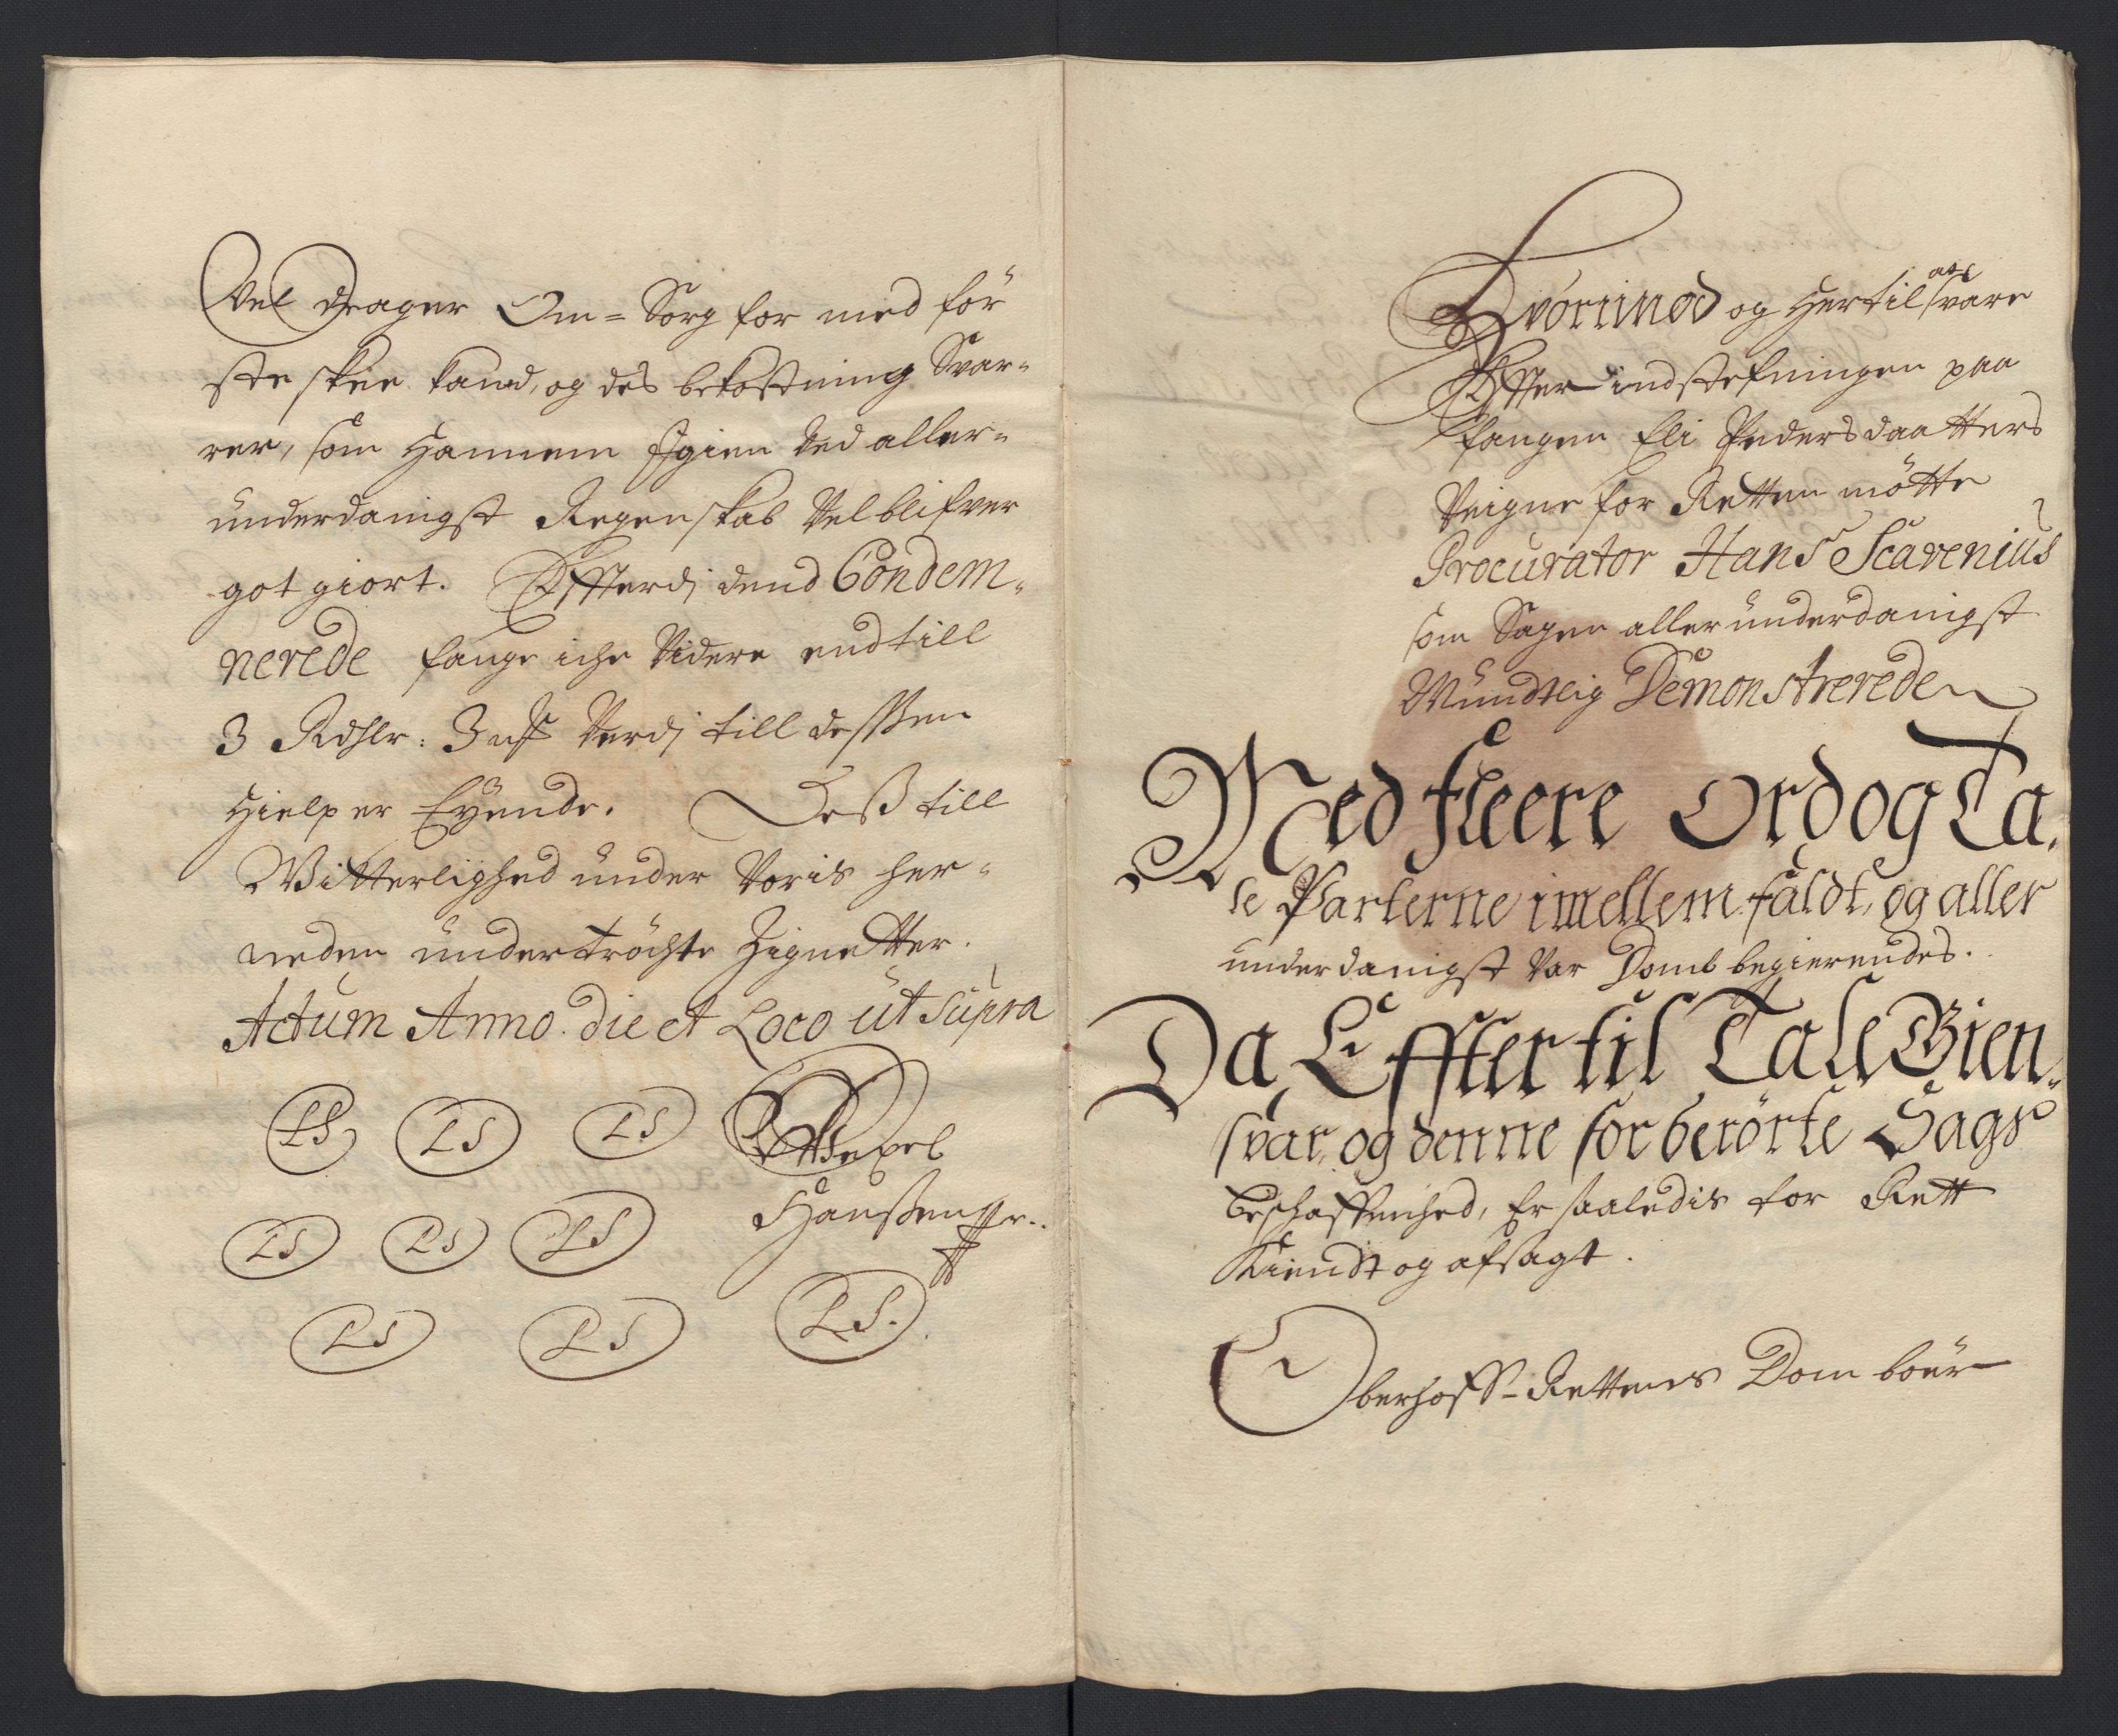 Vel drager Om=Sorg for med för
ste skee kand, og des bekostning Svar=
rer, som hannem Igien ved aller=
underdanigst Regenskab Vel blifver
got giort. Effterdj dend Condem=
nerede fange iche Videre end till
3 Rdhlr: 3 Verdj till dessen
hielp er Eyende. Dess till
Witterlighed under Voris her=
neden undertröchte Zignetter.
Actum Anno. die et Loco ut supra
LS LS LS Wexel
Hanssen
LS LS LS
LS LS LS.
Hvorimod og hertil att svare
Effter indstefningen paa
fangen Eli Pedersdaatters
Veigne for Retten mötte
Procurator Hans Scavenius
som Sagen allerunderdanigst
Mundtlig Demonstrerede
Med fleere Ord og Ta=
le Parterne imellem faldt, og aller
underdanigst Var Domb begierendes.
Da Effter til Tale Gien=
svar, og denne forberörte Sags
beschaffenhed, Er saaledis for Rett
Kiendt og afsagt.
Oberhoff-Rettens Dom boer